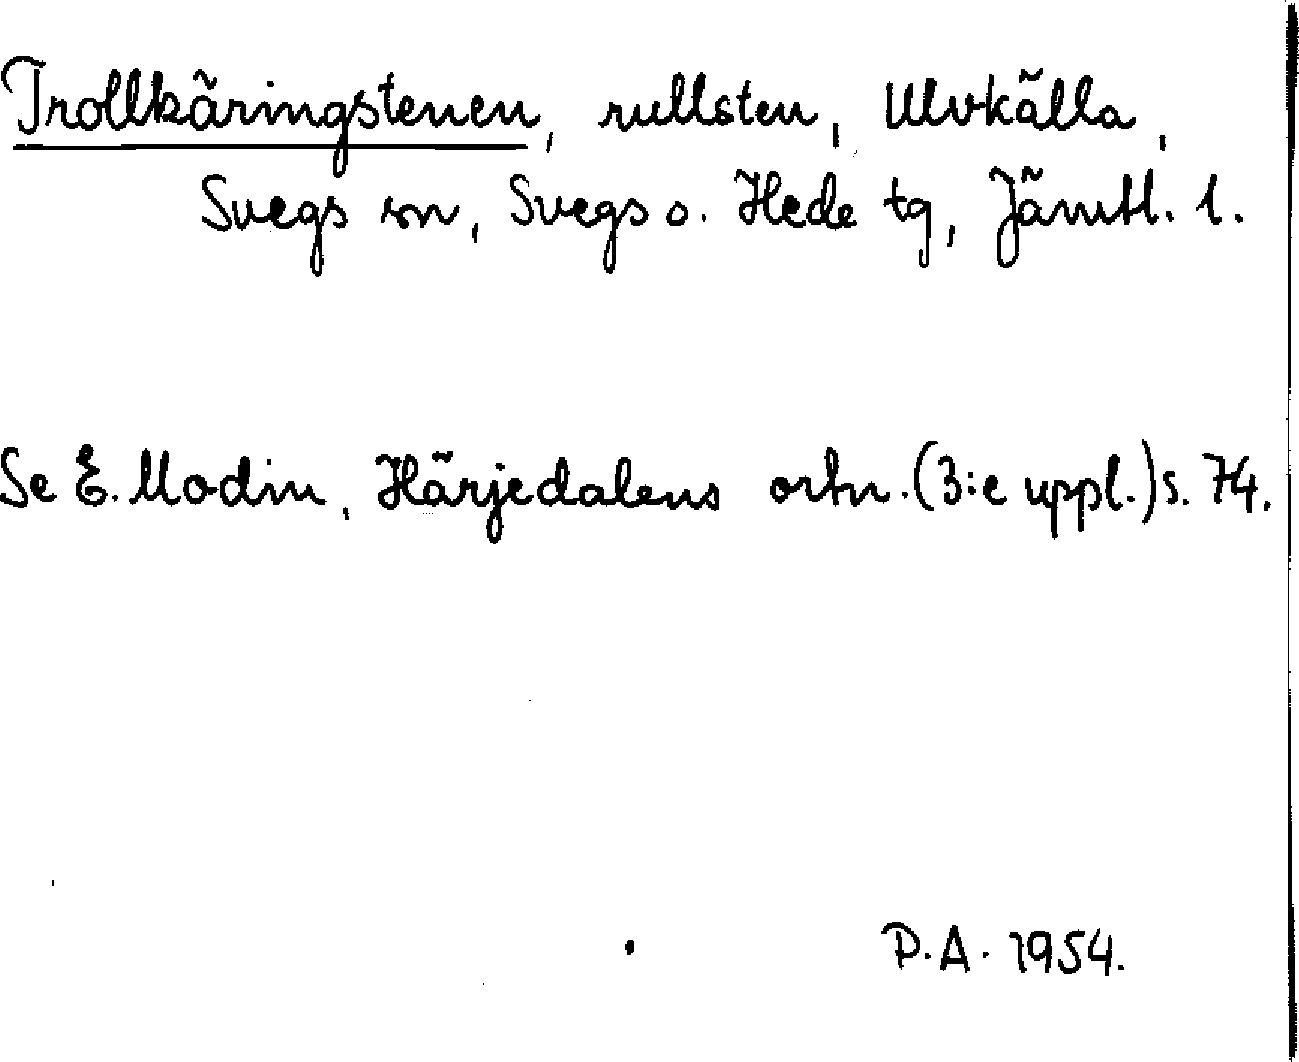 Trollkäringstenen, rullsten, Ulvkälla,
Svegs sn, Svegs o. Hede tg, Jämtl. l.
Se E. Modin, Härjedalens ortn. (3:e uppl.) s. 74.
P.A. 1954.